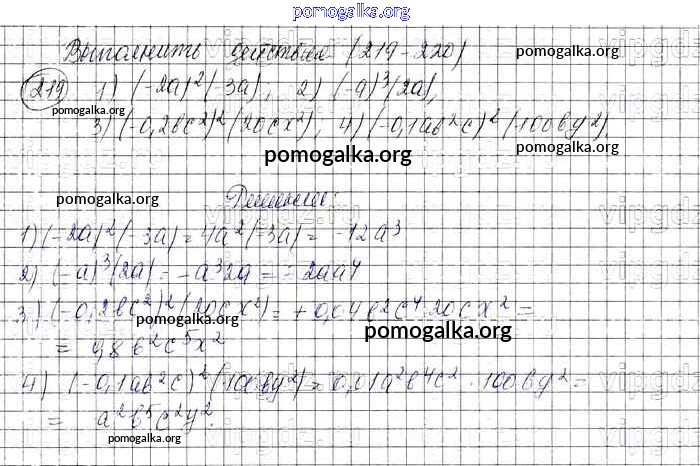 pomogalka.org
Выполнить действия (219-220)
pomogalka.org
219 1) (-2a)²(-3a); 2) (-a)³(2a);
pomogalka.org
3) (-0,2bc²)²(20cx²); 4) (-0,1ab²c)²(100by²).
pomogalka.org
pomogalka.org
pomogalka.org
Решение:
1) (-2a)²(-3a) = 4a²(-3a) = -12a³
2) (-a)³(2a) = -a³2a = -2aa⁴
3) (-0,2bc²)²(20cx²) = +0,04b²c⁴·20cx² =
pomogalka.org
pomogalka.org
= 0,8b²c⁵x²
4) (-0,1ab²c)²(100by²) = 0,01a²b⁴c²·100by² =
= a²b⁵c²y².
pomogalka.org